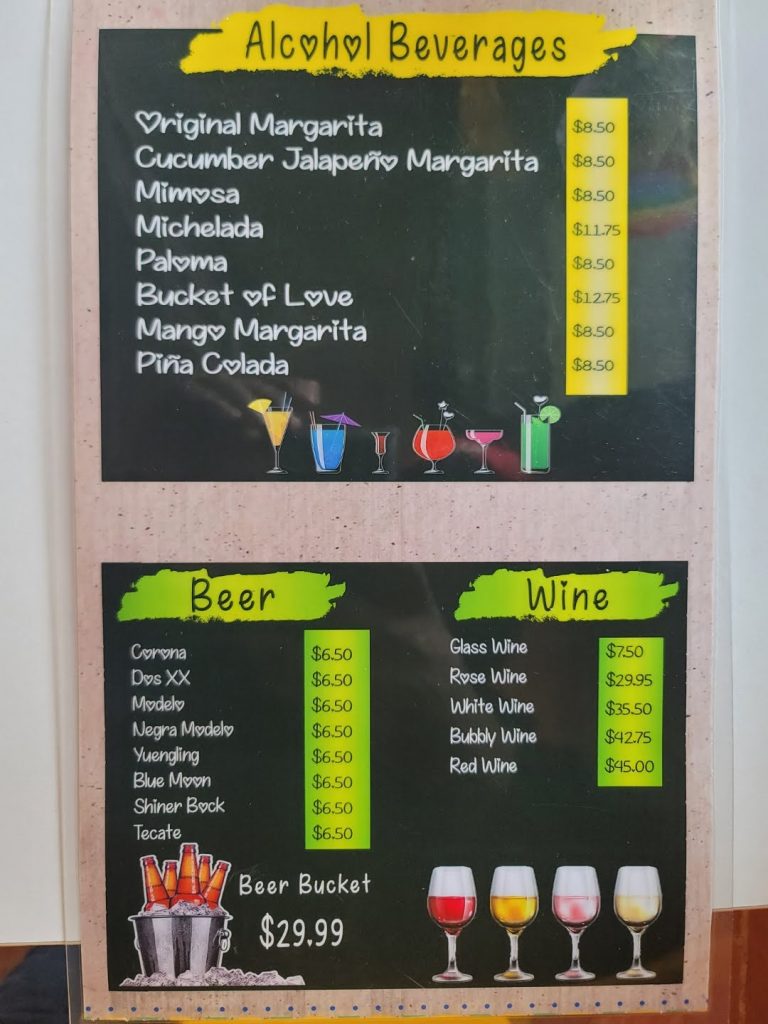 Alcohol Beverages
Original Margarita $8.50
Cucumber Jalapeño Margarita $8.50
Mimosa $8.50
Michelada $11.75
Paloma $8.50
Bucket of Love $12.75
Mango Margarita $8.50
Piña Colada $8.50
Beer
Corona $6.50
Dos XX $6.50
Modelo $6.50
Negra Modelo $6.50
Yuengling $6.50
Blue Moon $6.50
Shiner Bock $6.50
Tecate $6.50
Beer Bucket
$29.99
Wine
Glass Wine $7.50
Rose Wine $29.95
White Wine $35.50
Bubbly Wine $42.75
Red Wine $45.00